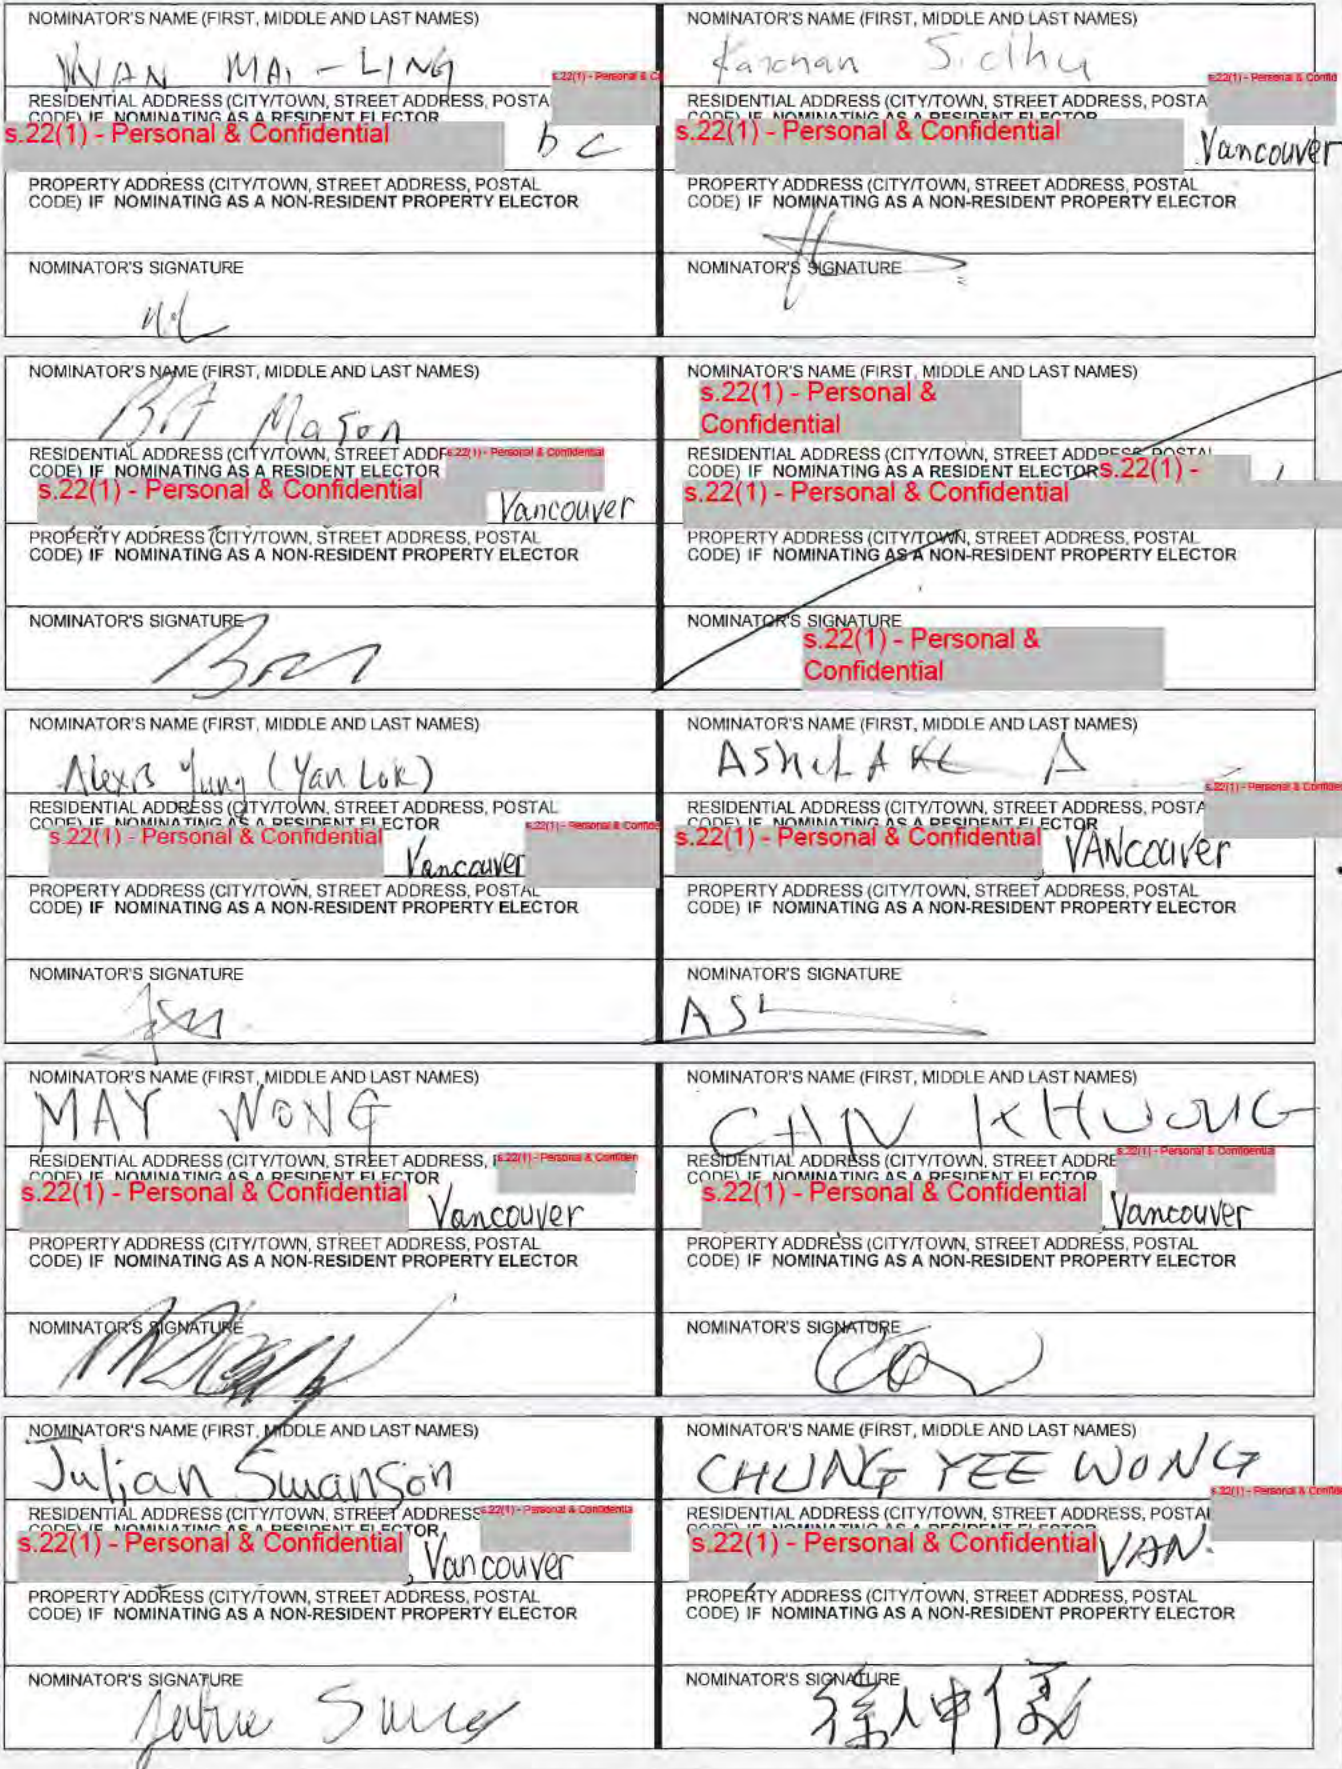 NOMINATOR'S NAME (FIRST, MIDDLE AND LAST NAMES)
WAN MAI-LING
s.22(1) - Personal & C
RESIDENTIAL ADDRESS (CITY/TOWN, STREET ADDRESS, POSTA
CODE) IF NOMINATING AS A RESIDENT ELECTOR
s.22(1) - Personal & Confidential
bc
PROPERTY ADDRESS (CITY/TOWN, STREET ADDRESS, POSTAL
CODE) IF NOMINATING AS A NON-RESIDENT PROPERTY ELECTOR
NOMINATOR'S SIGNATURE
NOMINATOR'S NAME (FIRST, MIDDLE AND LAST NAMES)
Sidhu
s.22(1) - Personal & Confid
RESIDENTIAL ADDRESS (CITY/TOWN, STREET ADDRESS, POSTA
CODE) IF NOMINATING AS A RESIDENT ELECTOR
s.22(1) - Personal & Confidential
Vancouver
PROPERTY ADDRESS (CITY/TOWN, STREET ADDRESS, POSTAL
CODE) IF NOMINATING AS A NON-RESIDENT PROPERTY ELECTOR
NOMINATOR'S SIGNATURE
NOMINATOR'S NAME (FIRST, MIDDLE AND LAST NAMES)
Mason
RESIDENTIAL ADDRESS (CITY/TOWN, STREET ADDR
s.22(1) - Personal & Confidential
CODE) IF NOMINATING AS A RESIDENT ELECTOR
s.22(1) - Personal & Confidential
Vancouver
PROPERTY ADDRESS (CITY/TOWN, STREET ADDRESS, POSTAL
CODE) IF NOMINATING AS A NON-RESIDENT PROPERTY ELECTOR
NOMINATOR'S SIGNATURE
NOMINATOR'S NAME (FIRST, MIDDLE AND LAST NAMES)
s.22(1) - Personal &
Confidential
RESIDENTIAL ADDRESS (CITY/TOWN, STREET ADDRESS, POSTAL
CODE) IF NOMINATING AS A RESIDENT ELECTOR
s.22(1) -
s.22(1) - Personal & Confidential
PROPERTY ADDRESS (CITY/TOWN, STREET ADDRESS, POSTAL
CODE) IF NOMINATING AS A NON-RESIDENT PROPERTY ELECTOR
NOMINATOR'S SIGNATURE
s.22(1) - Personal &
Confidential
NOMINATOR'S NAME (FIRST, MIDDLE AND LAST NAMES)
Alexis Yung (Yan Lok)
RESIDENTIAL ADDRESS (CITY/TOWN, STREET ADDRESS, POSTAL
CODE) IF NOMINATING AS A RESIDENT ELECTOR
s.22(1) - Personal & Confide
s.22(1) - Personal & Confidential
Vancouver
PROPERTY ADDRESS (CITY/TOWN, STREET ADDRESS, POSTAL
CODE) IF NOMINATING AS A NON-RESIDENT PROPERTY ELECTOR
NOMINATOR'S SIGNATURE
NOMINATOR'S NAME (FIRST, MIDDLE AND LAST NAMES)
s.22(1) - Personal & Confiden
RESIDENTIAL ADDRESS (CITY/TOWN, STREET ADDRESS, POSTA
CODE) IF NOMINATING AS A RESIDENT ELECTOR
s.22(1) - Personal & Confidential
VANcouver
PROPERTY ADDRESS (CITY/TOWN, STREET ADDRESS, POSTAL
CODE) IF NOMINATING AS A NON-RESIDENT PROPERTY ELECTOR
NOMINATOR'S SIGNATURE
NOMINATOR'S NAME (FIRST, MIDDLE AND LAST NAMES)
MAY WONG
RESIDENTIAL ADDRESS (CITY/TOWN, STREET ADDRESS,
s.22(1) - Personal & Confiden
CODE) IF NOMINATING AS A RESIDENT ELECTOR
s.22(1) - Personal & Confidential
Vancouver
PROPERTY ADDRESS (CITY/TOWN, STREET ADDRESS, POSTAL
CODE) IF NOMINATING AS A NON-RESIDENT PROPERTY ELECTOR
NOMINATOR'S SIGNATURE
NOMINATOR'S NAME (FIRST, MIDDLE AND LAST NAMES)
CHN KHUONG
RESIDENTIAL ADDRESS (CITY/TOWN, STREET ADDRE
s.22(1) - Personal & Confidential
CODE) IF NOMINATING AS A RESIDENT ELECTOR
s.22(1) - Personal & Confidential
Vancouver
PROPERTY ADDRESS (CITY/TOWN, STREET ADDRESS, POSTAL
CODE) IF NOMINATING AS A NON-RESIDENT PROPERTY ELECTOR
NOMINATOR'S SIGNATURE
NOMINATOR'S NAME (FIRST, MIDDLE AND LAST NAMES)
Julian Swanson
RESIDENTIAL ADDRESS (CITY/TOWN, STREET ADDRESS
s.22(1) - Personal & Confidentia
CODE) IF NOMINATING AS A RESIDENT ELECTOR
s.22(1) - Personal & Confidential
, Vancouver
PROPERTY ADDRESS (CITY/TOWN, STREET ADDRESS, POSTAL
CODE) IF NOMINATING AS A NON-RESIDENT PROPERTY ELECTOR
NOMINATOR'S SIGNATURE
NOMINATOR'S NAME (FIRST, MIDDLE AND LAST NAMES)
CHUNG YEE WONG
s.22(1) - Personal & Confide
RESIDENTIAL ADDRESS (CITY/TOWN, STREET ADDRESS, POSTAL
CODE) IF NOMINATING AS A RESIDENT ELECTOR
s.22(1) - Personal & Confidential
VAN.
PROPERTY ADDRESS (CITY/TOWN, STREET ADDRESS, POSTAL
CODE) IF NOMINATING AS A NON-RESIDENT PROPERTY ELECTOR
NOMINATOR'S SIGNATURE